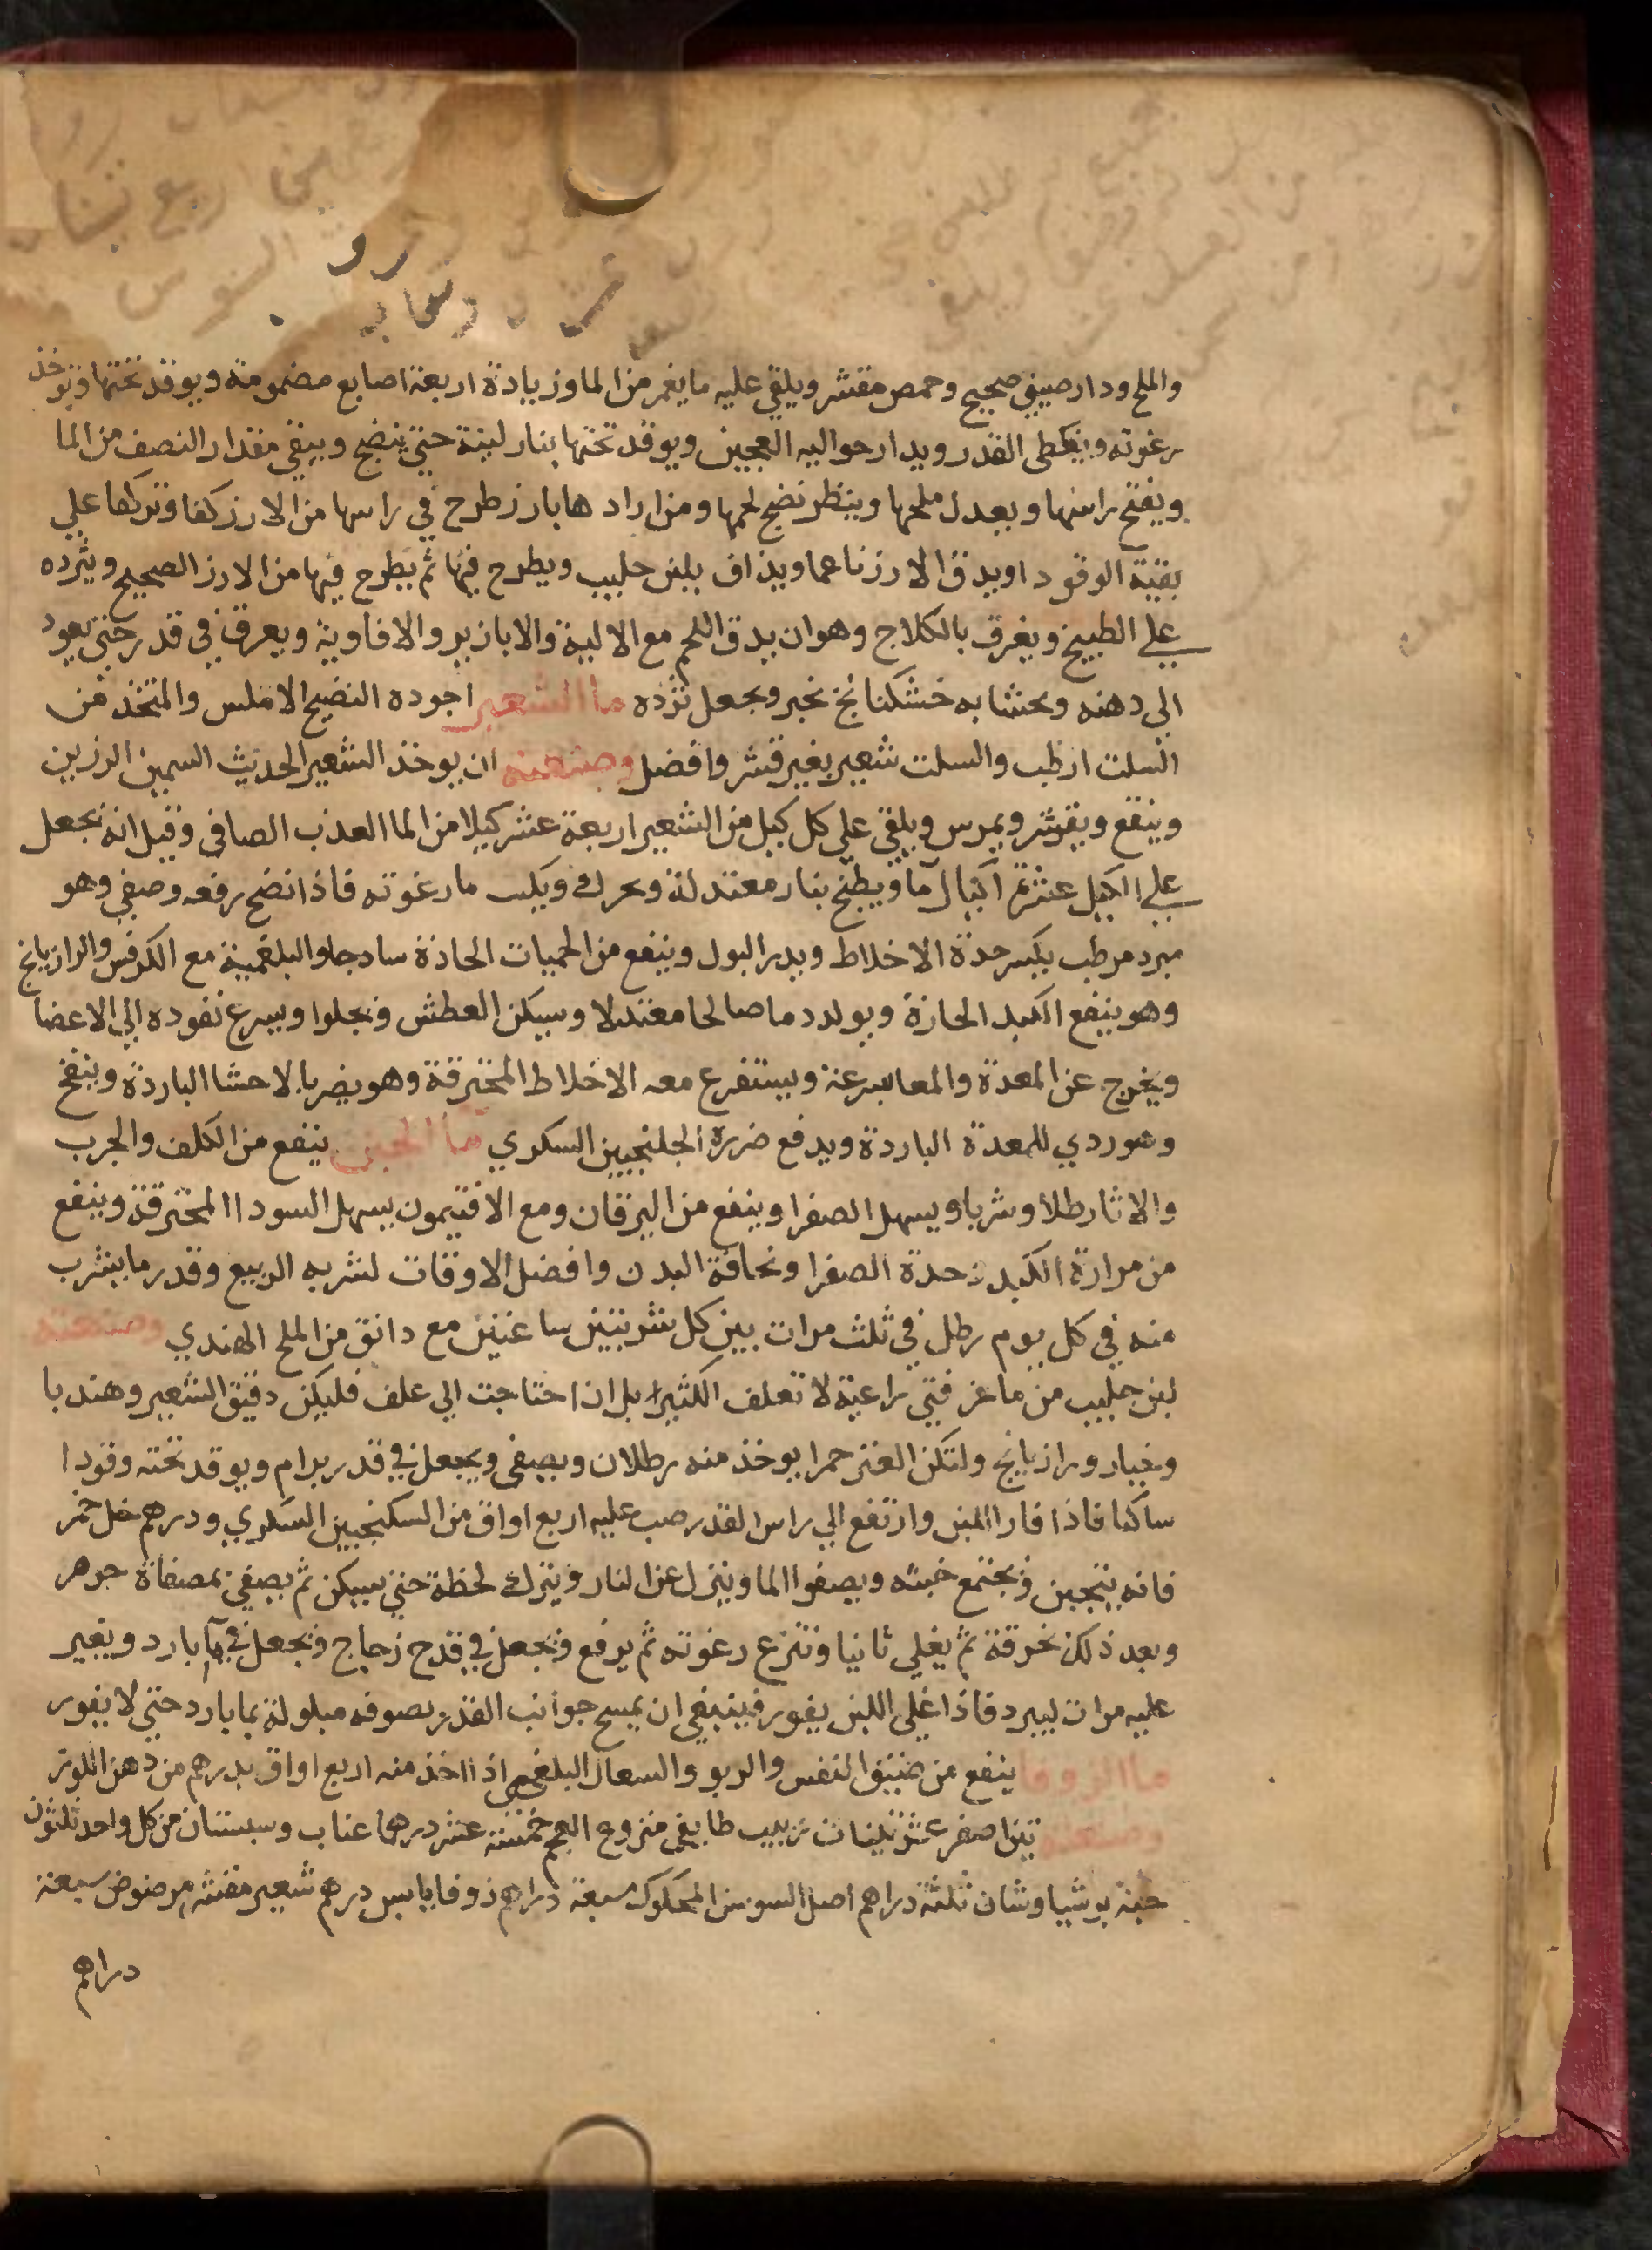 والملح ودارصيني صحيح وحمص مقشر ويلقي عليه ما يغمر من الما وزيادة اربعة اصابع مضمومة ويوقد تحتها وتوخذ
رغوته ويغطى القدر ويدار حواليه العجين ويوقد تحتها بنار لينة حتي ينضج ويبقي مقدار النصف من الما
ويفتح راسها ويعدل ملحها وينظر نضج لحمها ومن ارادها بارز طرح في راسها من الارز كفا وتركها علي
بقية الوقود او يدق الارز ناعما ويذاف بلبن حليب ويطرح فيها ثم يطرح فيها من الارز الصحيح ويثرده
علي الطبيخ ويغرق بالكلاج وهو ان يدق اللحم مع الالية والابازير والافاوية ويعرق في قدر حتي يعود
الي دهنه ويحشا به خشكنانج نخبر ويجعل نزده ما الشعير اجوده النضيح الاملس والمتخذ من
السلت ارطب والسلت شعير بغير قشر وافضل وصنعته ان يوخذ الشعير الحديث السمين الرزين
وينقع ويقوشر ويمرس ويلقي علي كل كيل من الشعير اربعة عشر كيلا من الما العذب الصافي وقيل انه يجعل
علي الكيل عشرة اكيال مآ ويطبخ بنار معتدلة ويحرك ويكب ما رغوته فاذا نضج رفعه وصفي وهو
مبرد مرطب يكسر حدة الاخلاط ويدر البول وينفع من الحميات الحادة سادجا والبلغمية مع الكرفس والرازيانج
وهو ينفع الكبد الحارة ويولد دما صالحا معتدلا وسيكن العطش ويجلوا ويسرع نفوده الي الاعضا
ويخرج عن المعدة والمعا بسرعة ويستفرع معه الاخلاط المحترقة وهو يضر بالاحشا الباردة وينفخ
وهو ردي للمعدة الباردة ويدفع ضرره الجلنجبين السكري مآ الجبن ينفع من الكلف والجرب
والاثار طلا وشربا ويسهل الصفرا وينفع من اليرقان ومع الافتيمون يسهل السودا المحترقة وينفع
من مرارة الكبد وحدة الصفرا ونحافة البدن وافضل الاوقات لشربه الربيع وقدر ما يشرب
منه في كل يوم رطل في ثلث مرات بين كل شربتين ساعتين مع دانق من الملح الهندي وصنعته
لبن حليب من ماعز فتي راعية لا تعلف الكثيرا بل ان احتاجت الي علف فليكن دقيق الشعير وهندبا
وخيار ورازيانج ولتكن العنز حمرا يوخذ منه رطلان ويصفي ويجعل في قدر برام ويوقد تحته وقودا
ساكنا فاذا فار اللبن وارتفع الي راس القدر صب عليه اربع اواق من السكنجبين السكري ودرهم خل خمر
فانه يتجبن ويجتمع خبثه ويصفوا الما وينزل عن النار ويترك لحظة حتي يسكن ثم يصفي بمصفاة جوهر
وبعد ذلك بخرقة ثم يغلي ثانيا وتنزع رغوته ثم يرفع ويجعل في قدح زجاج ويجعل في مآ بارد ويغير
عليه مرات ليبرد فاذا غلي اللبن يفور فينبغي ان يمسح جوانب القدر بصوفه مبلولة بما بارد حتي لا يفور
ما الزوفا ينفع من ضيق النفس والربو والسعال البلغمي اذا اخذ منه اربع اواق بدرهم من دهن اللوز
وصنعته تين اصفر عشر تينات زبيب طايفي منزوع العجم خمسة عشر درهما عناب وسبستان من كل واحد ثلثون
حبة برشياوشان ثلثة دراهم اصل السوس المحكوك سبعة دراهم زوفا يابس درهم شعير مقشر مرضوض سبعة
دراهم